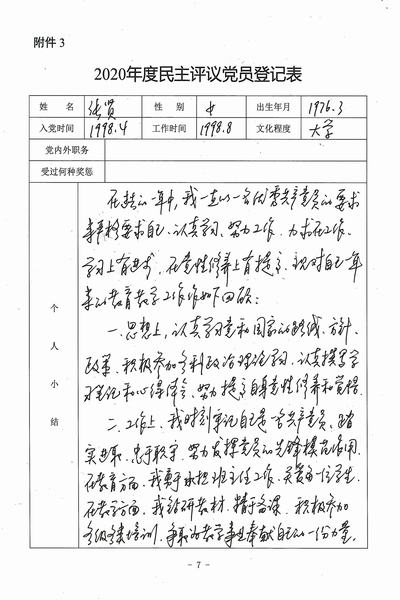 附件 3
2020年度民主评议党员登记表
姓 名 张贤 性 别 女 出生年月 1976.3
入党时间 1998.4 工作时间 1998.8 文化程度 大学
党内外职务
受过何种奖惩
个人小结
在过去的一年中,我一直以一名优秀共产党员的要求
来严格要求自己,认真学习、努力工作,力求在工作、
学习上有进步,在党性修养上有提高,现对自己一年
来的教育教学工作作如下回顾:
一、思想上,认真学习党和国家的路线、方针、
政策,积极参加各种政治理论学习,认真撰写学
习笔记和心得体会,努力提高自身党性修养和觉悟。
二、工作上,我时刻牢记自己是一名共产党员,踏
实进取,忠于职守,努力发挥党员的先锋模范作用。
在教育方面,我勇于承担班主任工作,关爱每一位学生。
在教学方面,我钻研教材,精于备课,积极参加
各级各类培训,争取为教学事业奉献自己的一份力量。
- 7 -